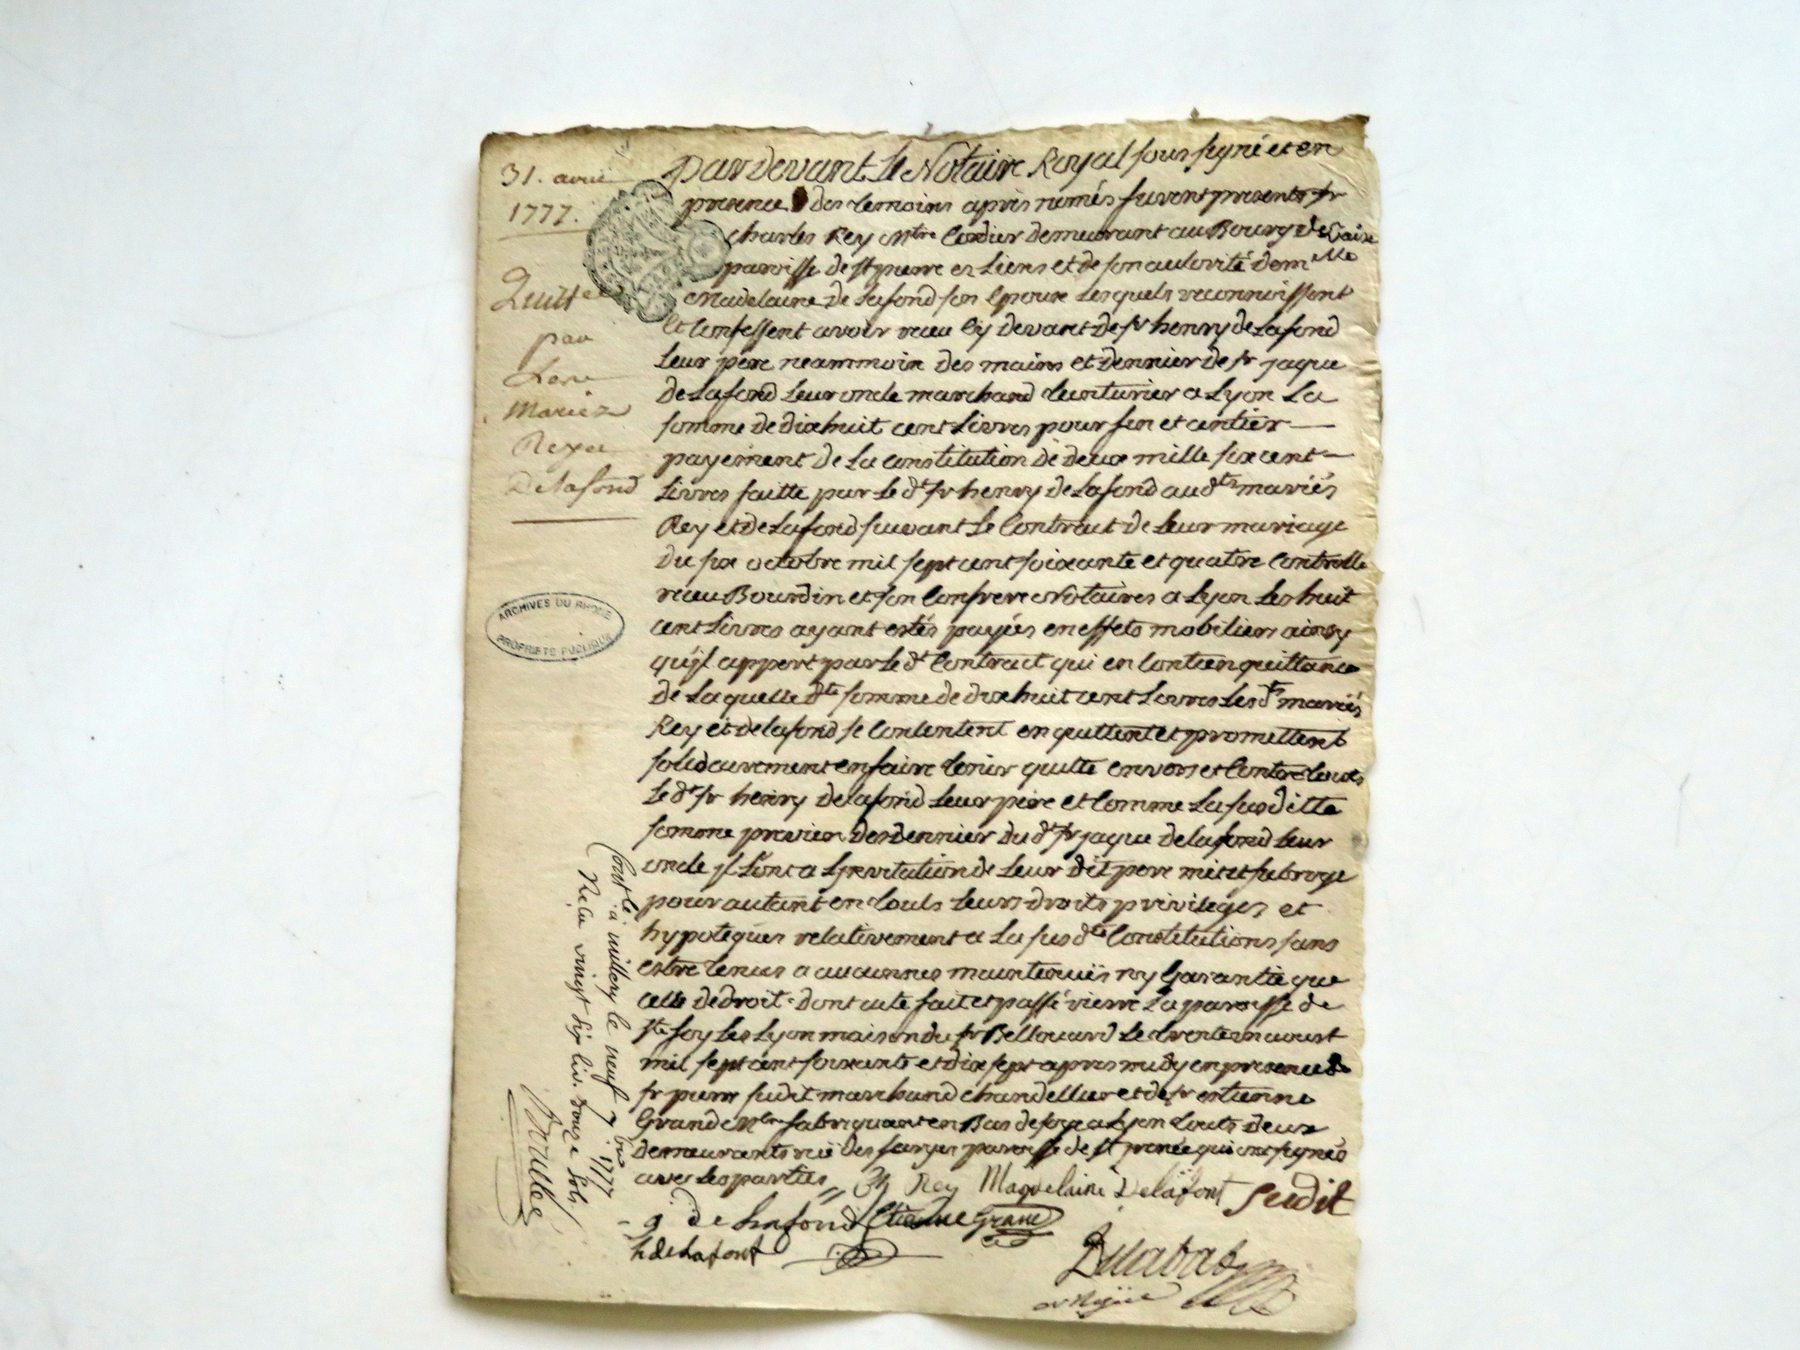 31. aoust
1777.
Quitt.ce
par
Les
Mariez
Rey et
Delafond
ARCHIVES DU RHONE
PROPRIETE PUBLIQUE
Pardevant Le Notaire Royal soussigné et en
presence des temoins apres només furent presents sr
Charles Rey Mtre Cordier demeurant au Bourg de Vaise
paroisse de St pierre es Liens et de son autorité demlle
Madelaine de Lafond son Epouse Lesquels reconnoissent
Et Confessent avoir receu Cy devant de sr henry de Lafond
Leur pere neammoin des mains et dennier de sr jaque
de Lafond Leur oncle marchand teinturier a Lyon La
somme de dixhuit cent Livres pour fin et entier
payement de La constitution de deux mille six cent
Livres faitte par Le dt sr henry de Lafond aud.ts mariés
Rey et de Lafond suivant Le Contract de Leur mariage
du six octobre mil sept cent soixante et quatre Controllé
receu Bourdin et son Confrere Notaires a Lyon Les huit
cent Livres ayant estés payées en effets mobiliers ainsy
qu'jl appert par Le dt Contract qui en Contien quittance
de Laquelle dte somme de dixhuit cent Livres Lesd.ts mariés
Rey et delafond se Contentent en quittent et promettent
solidairement en faire tenir quitte envers et Contre touts
Le dt sr henry delafond Leur pere et Comme La susditte
somme provien des dennier du dt sr jaque delafond Leur
oncle jl Lont a Linvitation de Leur dit pere mis et subroge
pour autant en touts Leurs droits privileges et
hypoteques relativement a La susdte Constitutions sans
estre tenus a aucunnes maintenuïs ny Garantie que
celle de droit. dont acte fait et passé vierre La paroisse de
Ste foy Les Lyon maison du sr Bellouard Le trente un aoust
mil sept cent soixante et dix sept apres midy en presence de
sr pierre sudit marchand chandellier et de sr estienne
Grand Mtre fabriquant en Bas de soye a Lyon touts deux
demeurants ruë des farges paroisse de St jrenée qui ont signés
avec Les parties
Rey Magdelaine Delafont Sudit
g. de Lafond Etienne Grand
h delafont
Contlé à millery le neuf 7bre 1777
Reçu vingt six liv. douze sols